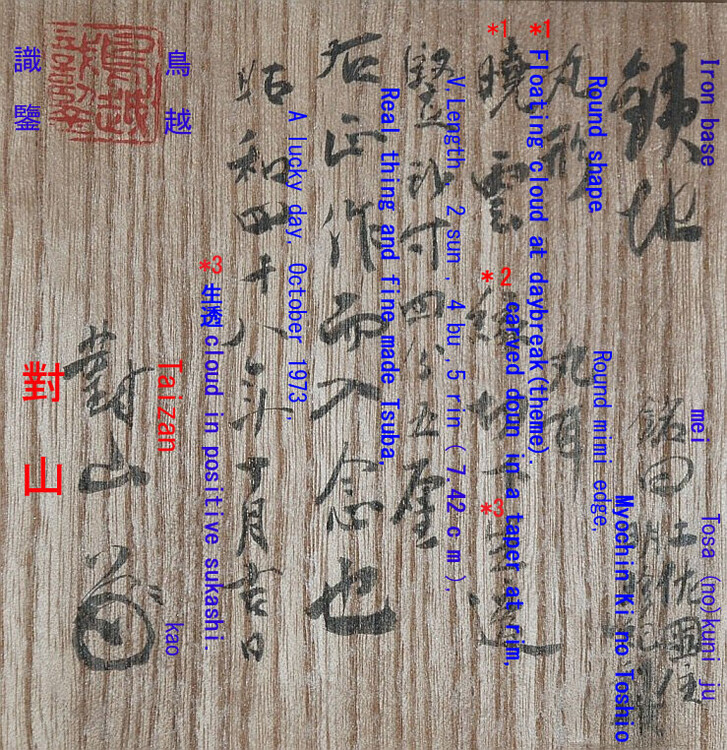 Iron base
銕地
mei Tosa (no)kuni ju
銘曰 土佐國住
Myochin Ki no Toshio
Round shape
丸形
Round mimi edge,
丸耳
*1 Floating cloud at daybreak(theme).
*2 carved doun in a taper at rim,
*1 曉雲
*2 縁切下
*3 生透
V.Length 2 sun , 4 bu , 5 rin ( 7.42 c m ),
竪弐寸四分五厘
Real thing and fine made Tsuba,
右正作而入念也
A lucky day, October 1973,
昭和四十八年十月吉日
*3 生透 cloud in positive sukashi.
鳥越
Taizan
kao
對山
識鑒
對山